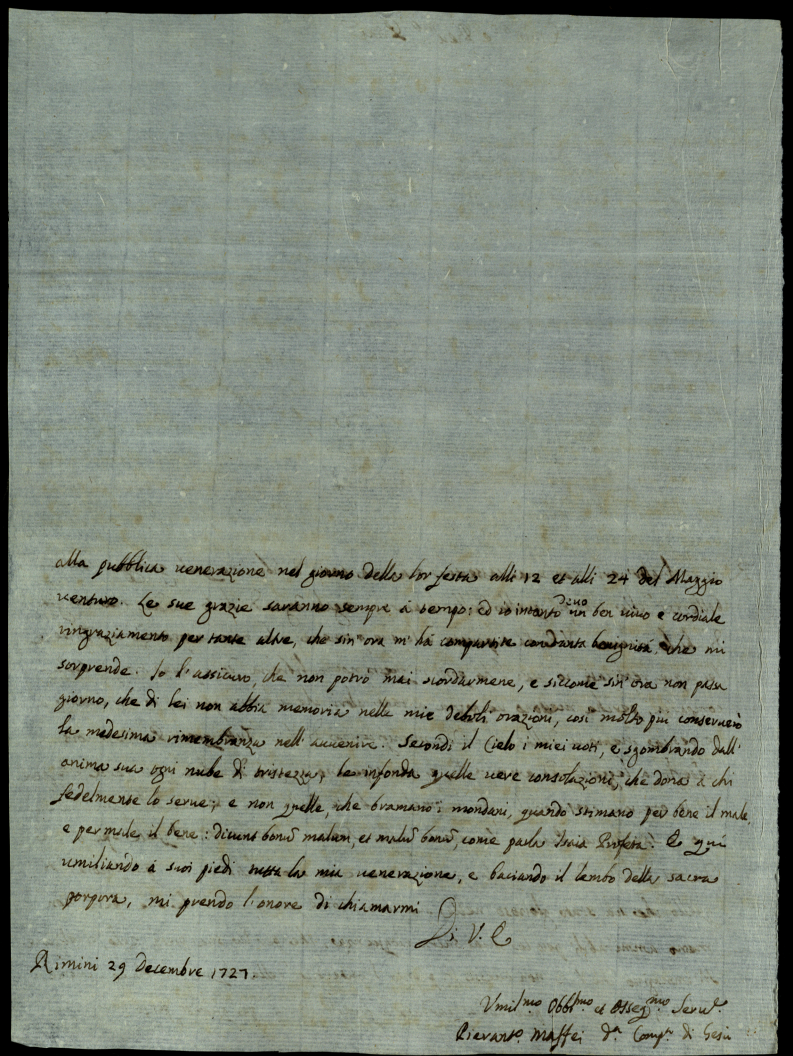 alla pubblica venerazione nel giorno della lor festa alli 12 et alli 24 del Maggio
venturo. Le sue grazie saranno sempre à tempo: ed io intanto devo un ben vivo e cordiale
ringraziamento per tante altre, che sin' ora m' hà compartite con tanta benignità, che mi
sorprende. Io l' assicuro, che non potrò mai scordarmene, e siccome sin' ora non passa
giorno, che di lei non abbia memoria nelle mie deboli orazioni, così molto più conserverò
la medesima rimembranza nell' avvenire. Secondi il Cielo i miei voti, e sgombrando dall'
anima sua ogni nube di tristezza, le infonda quelle vere consolazioni, che dona à chi
fedelmente lo serve; e non quelle, che bramano i mondani, quando stimano per bene il male,
e per male, il bene: dicunt bonũ malum, et malũ bonũ, come parla Isaia Profeta. E qui
umiliando à suoi piedi tutta la mia venerazione, e baciando il lembo della sacra
porpora, mi prendo l' onore di chiamarmi
Di V. E
Rimini 29 decembre 1727.
Umil.mo Obbl.mo et Osseq.mo Serv.e
Pierant.o Maffei d.a Comp.a di Gesù